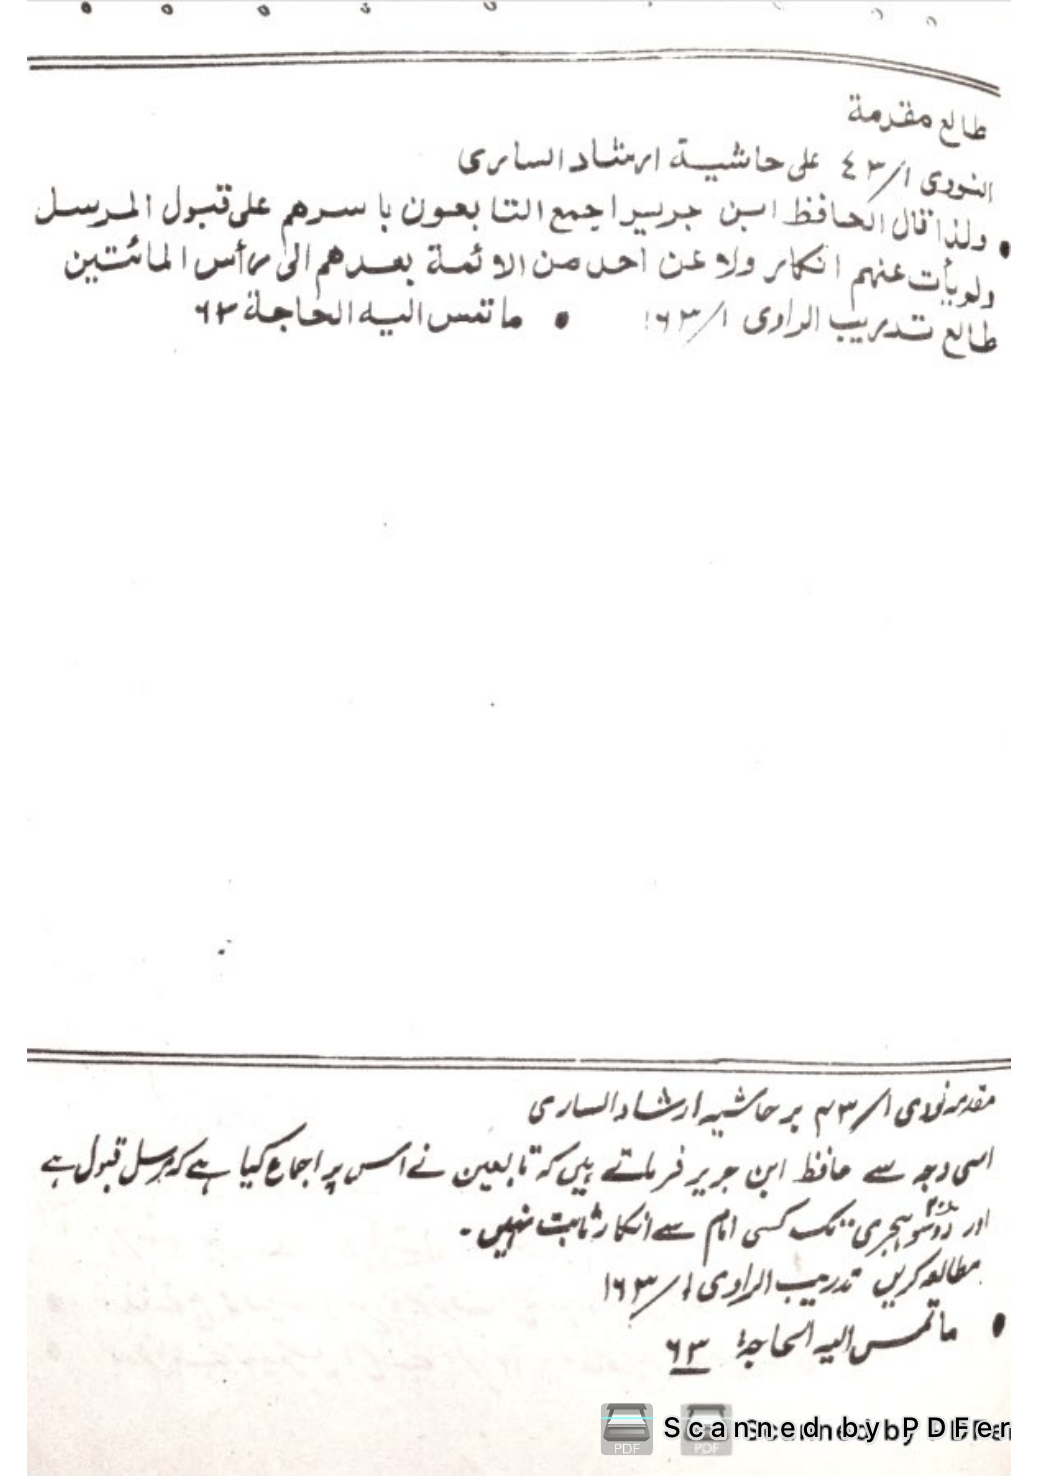 طالع مقدمة
النووی ۱/۴۳ علی حاشیة ارشاد الساری
• ولذا قال الحافظ ابن جریر اجمع التابعون باسرهم علی قبول المرسل
ولم یأت عنهم انکار ولا عن احد من الائمة بعدهم الی رأس المائتین
طالع تدریب الراوی ۱/۱۶۳ • ما تمس الیه الحاجة ۶۳
مقدمہ نووی ۱/۴۳ بر حاشیہ ارشاد الساری
اسی وجہ سے حافظ ابن جریر فرماتے ہیں کہ تابعین نے اس پر اجماع کیا ہے کہ مرسل قبول ہے
اور دوسو ہجری ۲۰۰ تک کسی امام سے انکار ثابت نہیں۔
مطالعہ کریں تدریب الراوی ۱/۱۶۳
• ما تمس الیہ الحاجۃ ۶۳
Scanned by PDFer